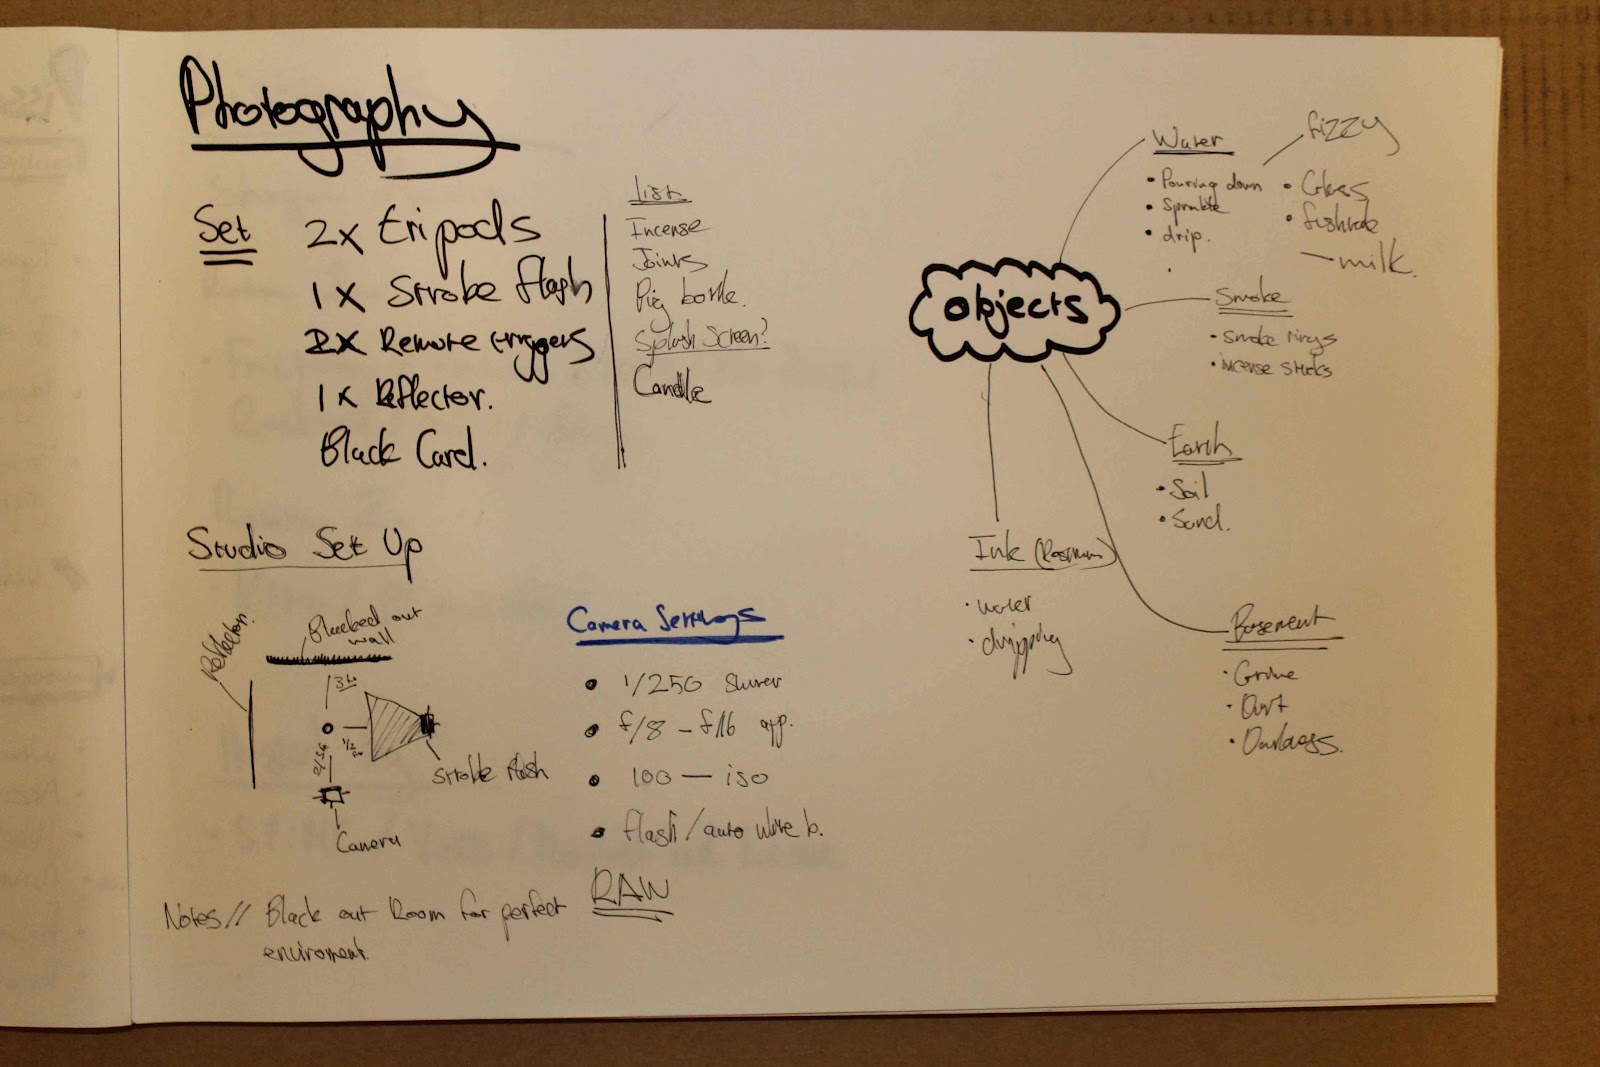 Photography
Set
2x tripods
1x Strobe flash
2x Remote triggers
1x Reflector.
Black Card.
List
Incense
Joints
Big bottle.
Splash Screen?
Candle
Studio Set Up
Reflector.
Blacked out
wall
3ft
1/2
Strobe flash
Camera
Camera Settings
1/250 Shutter
f/8 - f/16 app.
100 — iso
flash/auto white b.
RAW
Notes// Black out Room for perfect
enviroment.
objects
Water
• Pouring down
• Sprinkle
• drip.
fizzy
• Glass
•
— milk.
Smoke
• Smoke rings
• incense sticks
Earth
• Soil
• Sand.
Ink
• water
• dripping
Basement
• Grime
• Dirt
• Darkness.